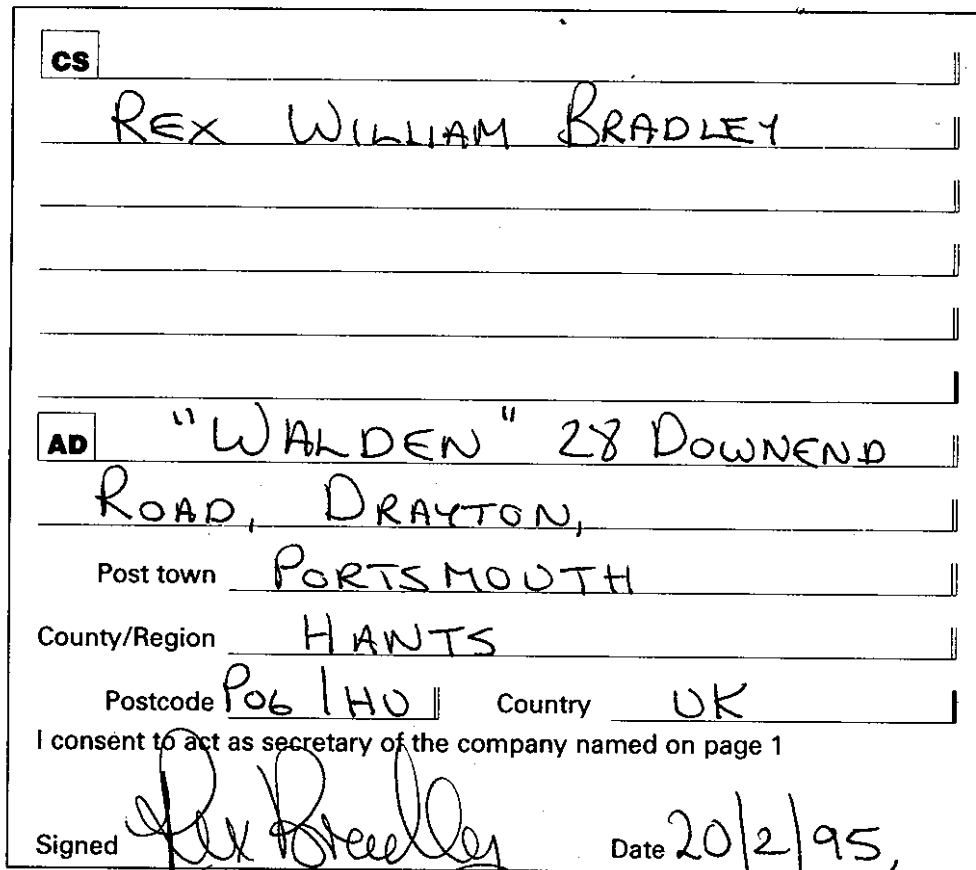 CS
REX WILLIAM BRADLEY
AD "WALDEN" 28 DOWNEND
ROAD, DRAYTON,
Post town PORTSMOUTH
County/Region HANTS
Postcode PO6 1HU Country UK
I consent to act as secretary of the company named on page 1
Signed Rex Bradley Date 20/2/95,